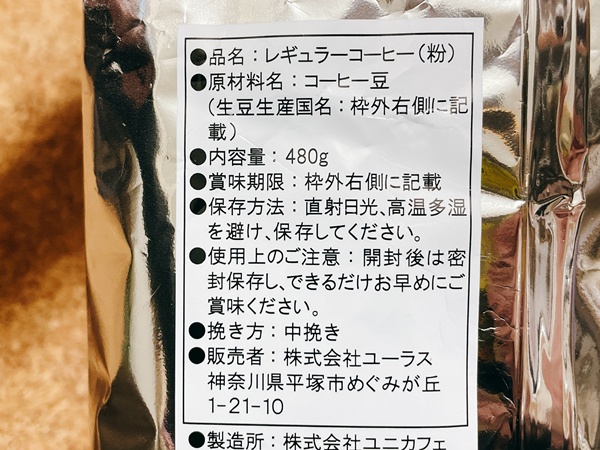 ●品名：レギュラーコーヒー（粉）
●原材料名：コーヒー豆
（生豆生産国名：枠外右側に記
載）
●内容量：480g
●賞味期限：枠外右側に記載
●保存方法：直射日光、高温多湿
を避け、保存してください。
●使用上のご注意：開封後は密
封保存し、できるだけお早めにご
賞味ください。
●挽き方：中挽き
●販売者：株式会社ユーラス
神奈川県平塚市めぐみが丘
1-21-10
●製造所：株式会社ユニカフェ